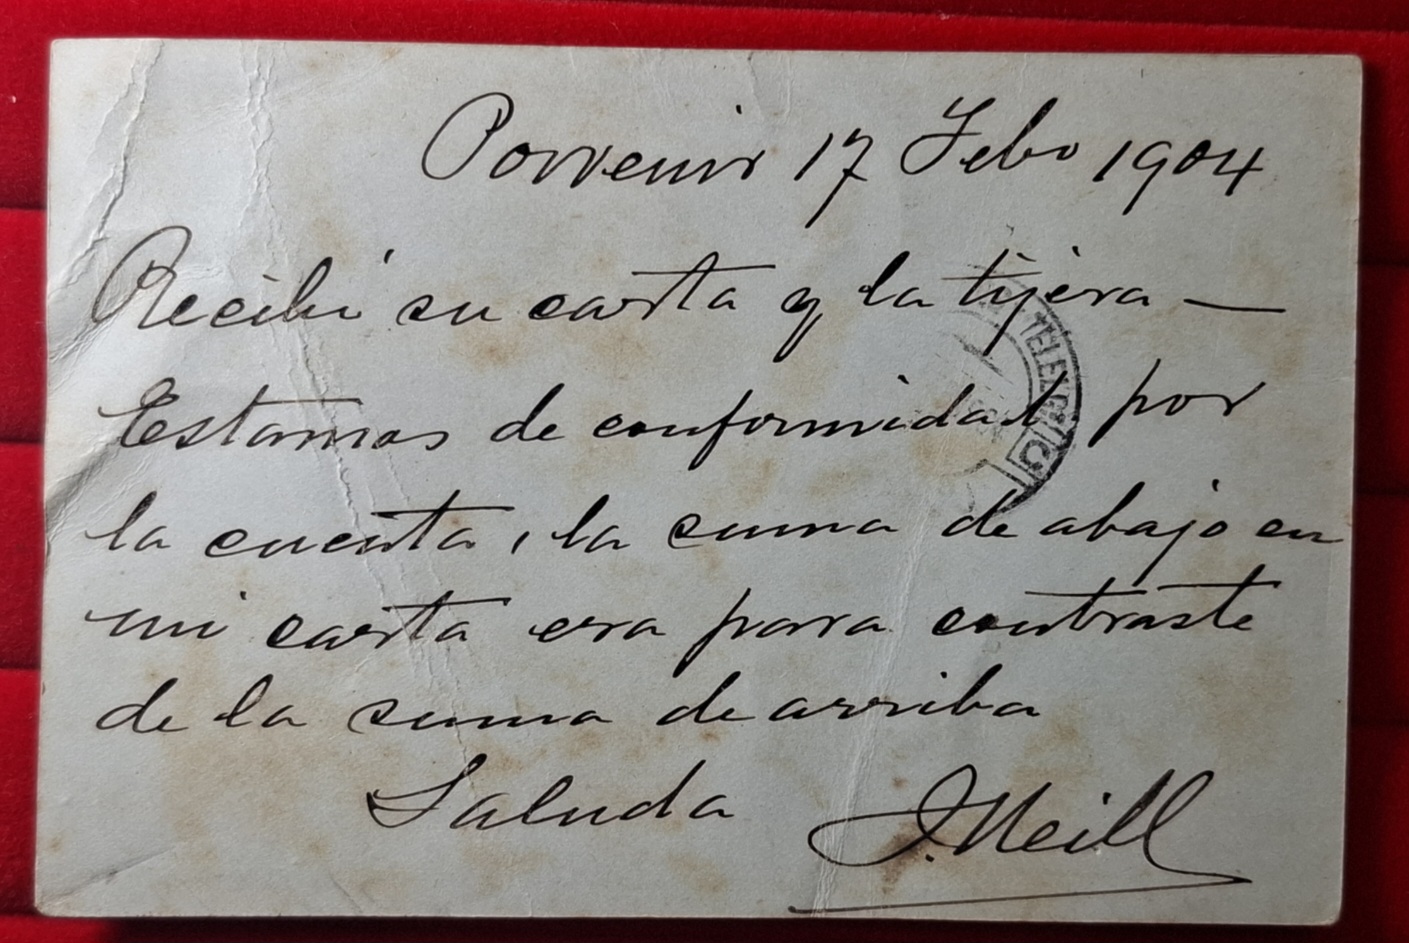 Porvenir 17 Febo 1904
Recibí su carta y la tijera —
Estamos de conformidad por
la cuenta, la suma de abajo en
mi carta era para contraste
de la suma de arriba
Saluda J. Neill
TELEX